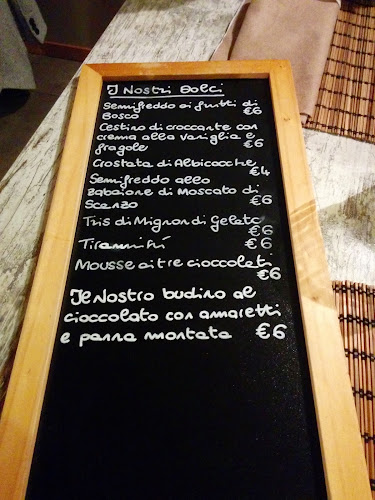 I Nostri Dolci
Semifreddo ai frutti di
Bosco €6
Cestino di croccante con
crema alla vaniglia e
fragole €6
Crostata di Albicocche
€4
Semifreddo allo
Zabaione di Moscato di
Scanzo €6
Tris di Mignon di Gelato
€6
Tiramisú €6
Mousse ai tre cioccolati
€6
Il Nostro budino al
cioccolato con amaretti
e panna montata €6